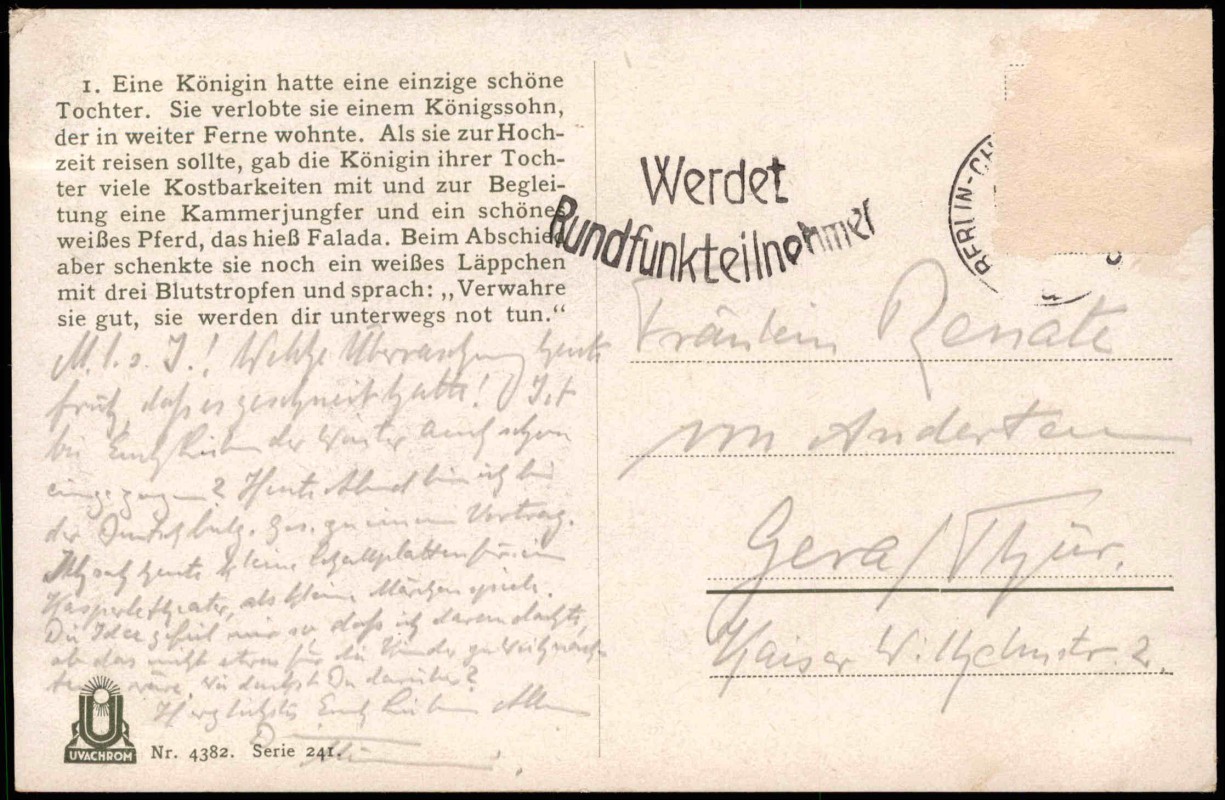 1. Eine Königin hatte eine einzige schöne
Tochter. Sie verlobte sie einem Königssohn,
der in weiter Ferne wohnte. Als sie zur Hoch-
zeit reisen sollte, gab die Königin ihrer Toch-
ter viele Kostbarkeiten mit und zur Beglei-
tung eine Kammerjungfer und ein schönes
weißes Pferd, das hieß Falada. Beim Abschied
aber schenkte sie noch ein weißes Läppchen
mit drei Blutstropfen und sprach: „Verwahre
sie gut, sie werden dir unterwegs not tun.“
M. l. s. J.! Welche Überraschung heute
früh, daß es geschneit hatte! Ist
bei Euch Lieben der Winter auch schon
eingezogen? Heute Abend bin ich bei
der Ges. zu einem Vortrag.
Ich sah heute kleine Schallplatten für ein
Kasperletheater, als kleine Märchenspiele.
Die Idee gefiel mir so, daß ich daran dachte,
ob das nicht etwas für die Kinder zu Weihnach-
ten wäre, wie denkst Du darüber?
Herzlichst Euch Lieben Allen
UVACHROM
Nr. 4382. Serie 241.
Werdet
Rundfunkteilnehmer
BERLIN-CH
Fräulein Renate
von Anderten
Gera/Thür.
Kaiser Wilhelmstr. 2.